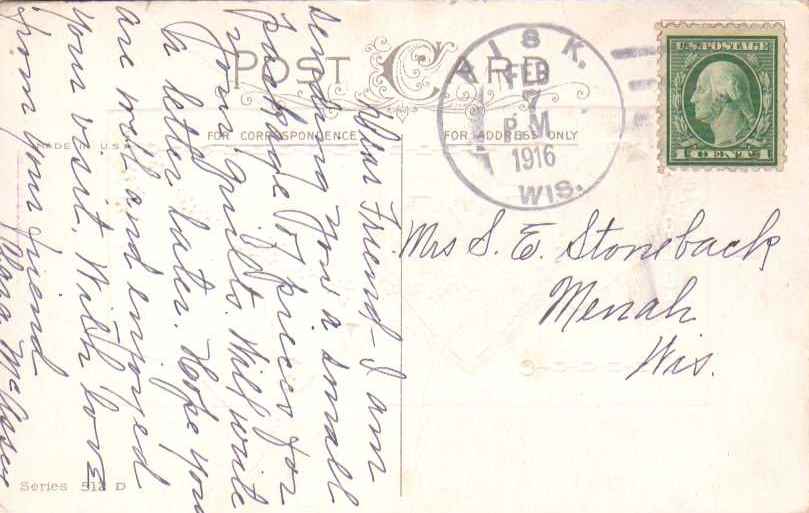 POST CARD
FOR CORRESPONDENCE
FOR ADDRESS ONLY
MADE U.S.
U.S. POSTAGE
1 CENTS 1
ISK.
FEB
7
P.M
1916
WIS.
Dear Friend – I am
sending you a small
package of pieces for
your quilt. Will write
a letter later. Hope you
are well and enjoyed
your visit. With love
from your friend
Mrs S. E. Stoneback
Menah
Wis.
Series 512 D